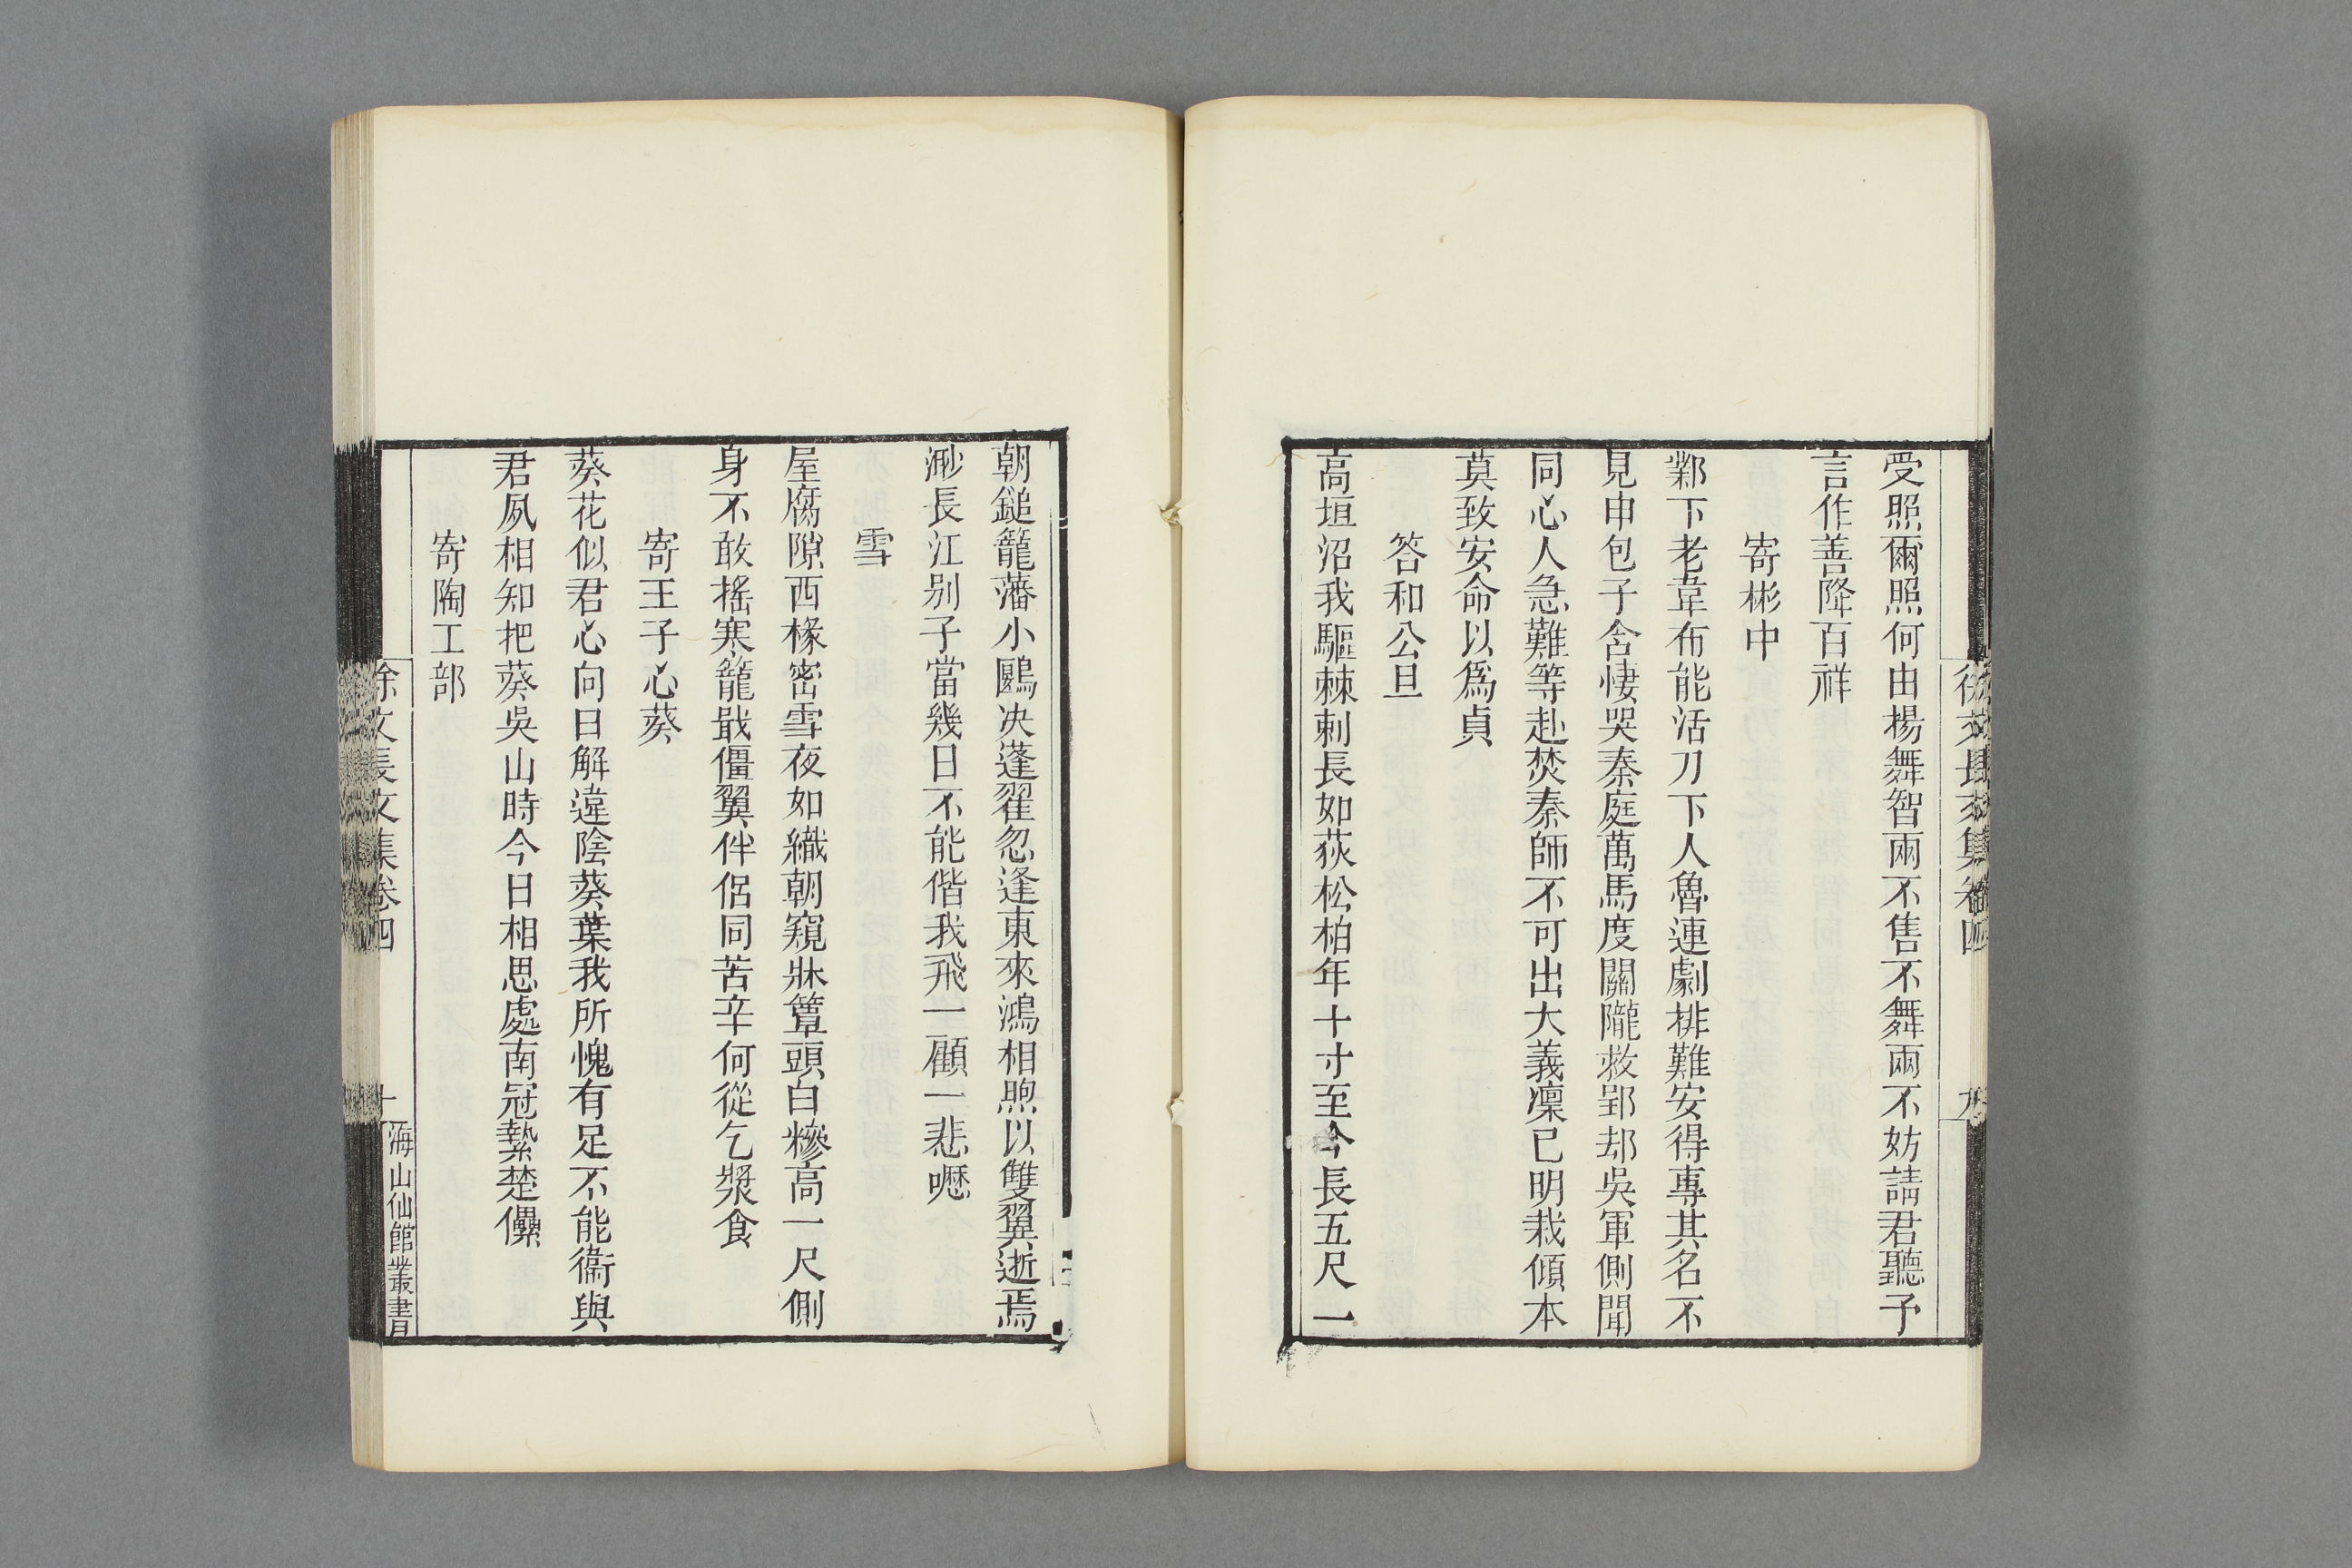 徐文長文集卷四
九
受照爾照何由楊舞智兩不售不舞兩不妨請君聽予
言作善降百祥
寄彬中
鄴下老韋布能活刀下人魯連劇排難安得專其名不
見申包子含悽哭秦庭萬馬度關隴救郢却吳軍側聞
同心人急難等赴焚秦師不可出大義凜已明栽傾本
莫致安命以爲貞
答和公旦
高垣沼我驅棘刺長如荻松柏年十寸至今長五尺一
朝鎚籠藩小鷃决蓬翟忽逢東來鴻相煦以雙翼逝焉
渺長江别子當幾日不能偕我飛一顧一悲嚦
雪
屋腐隙西椽密雪夜如織朝窺牀簟頭白糝高一尺側
身不敢搖寒籠戢僵翼伴侶同苦辛何從乞漿食
寄王子心葵
葵花似君心向日解違陰葵葉我所愧有足不能衞與
君夙相知把葵吳山時今日相思處南冠縶楚儽
寄陶工部
徐文長文集卷四
十
海山仙館叢書